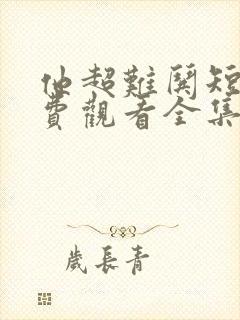 他超難關短
費觀看全集
歲長青